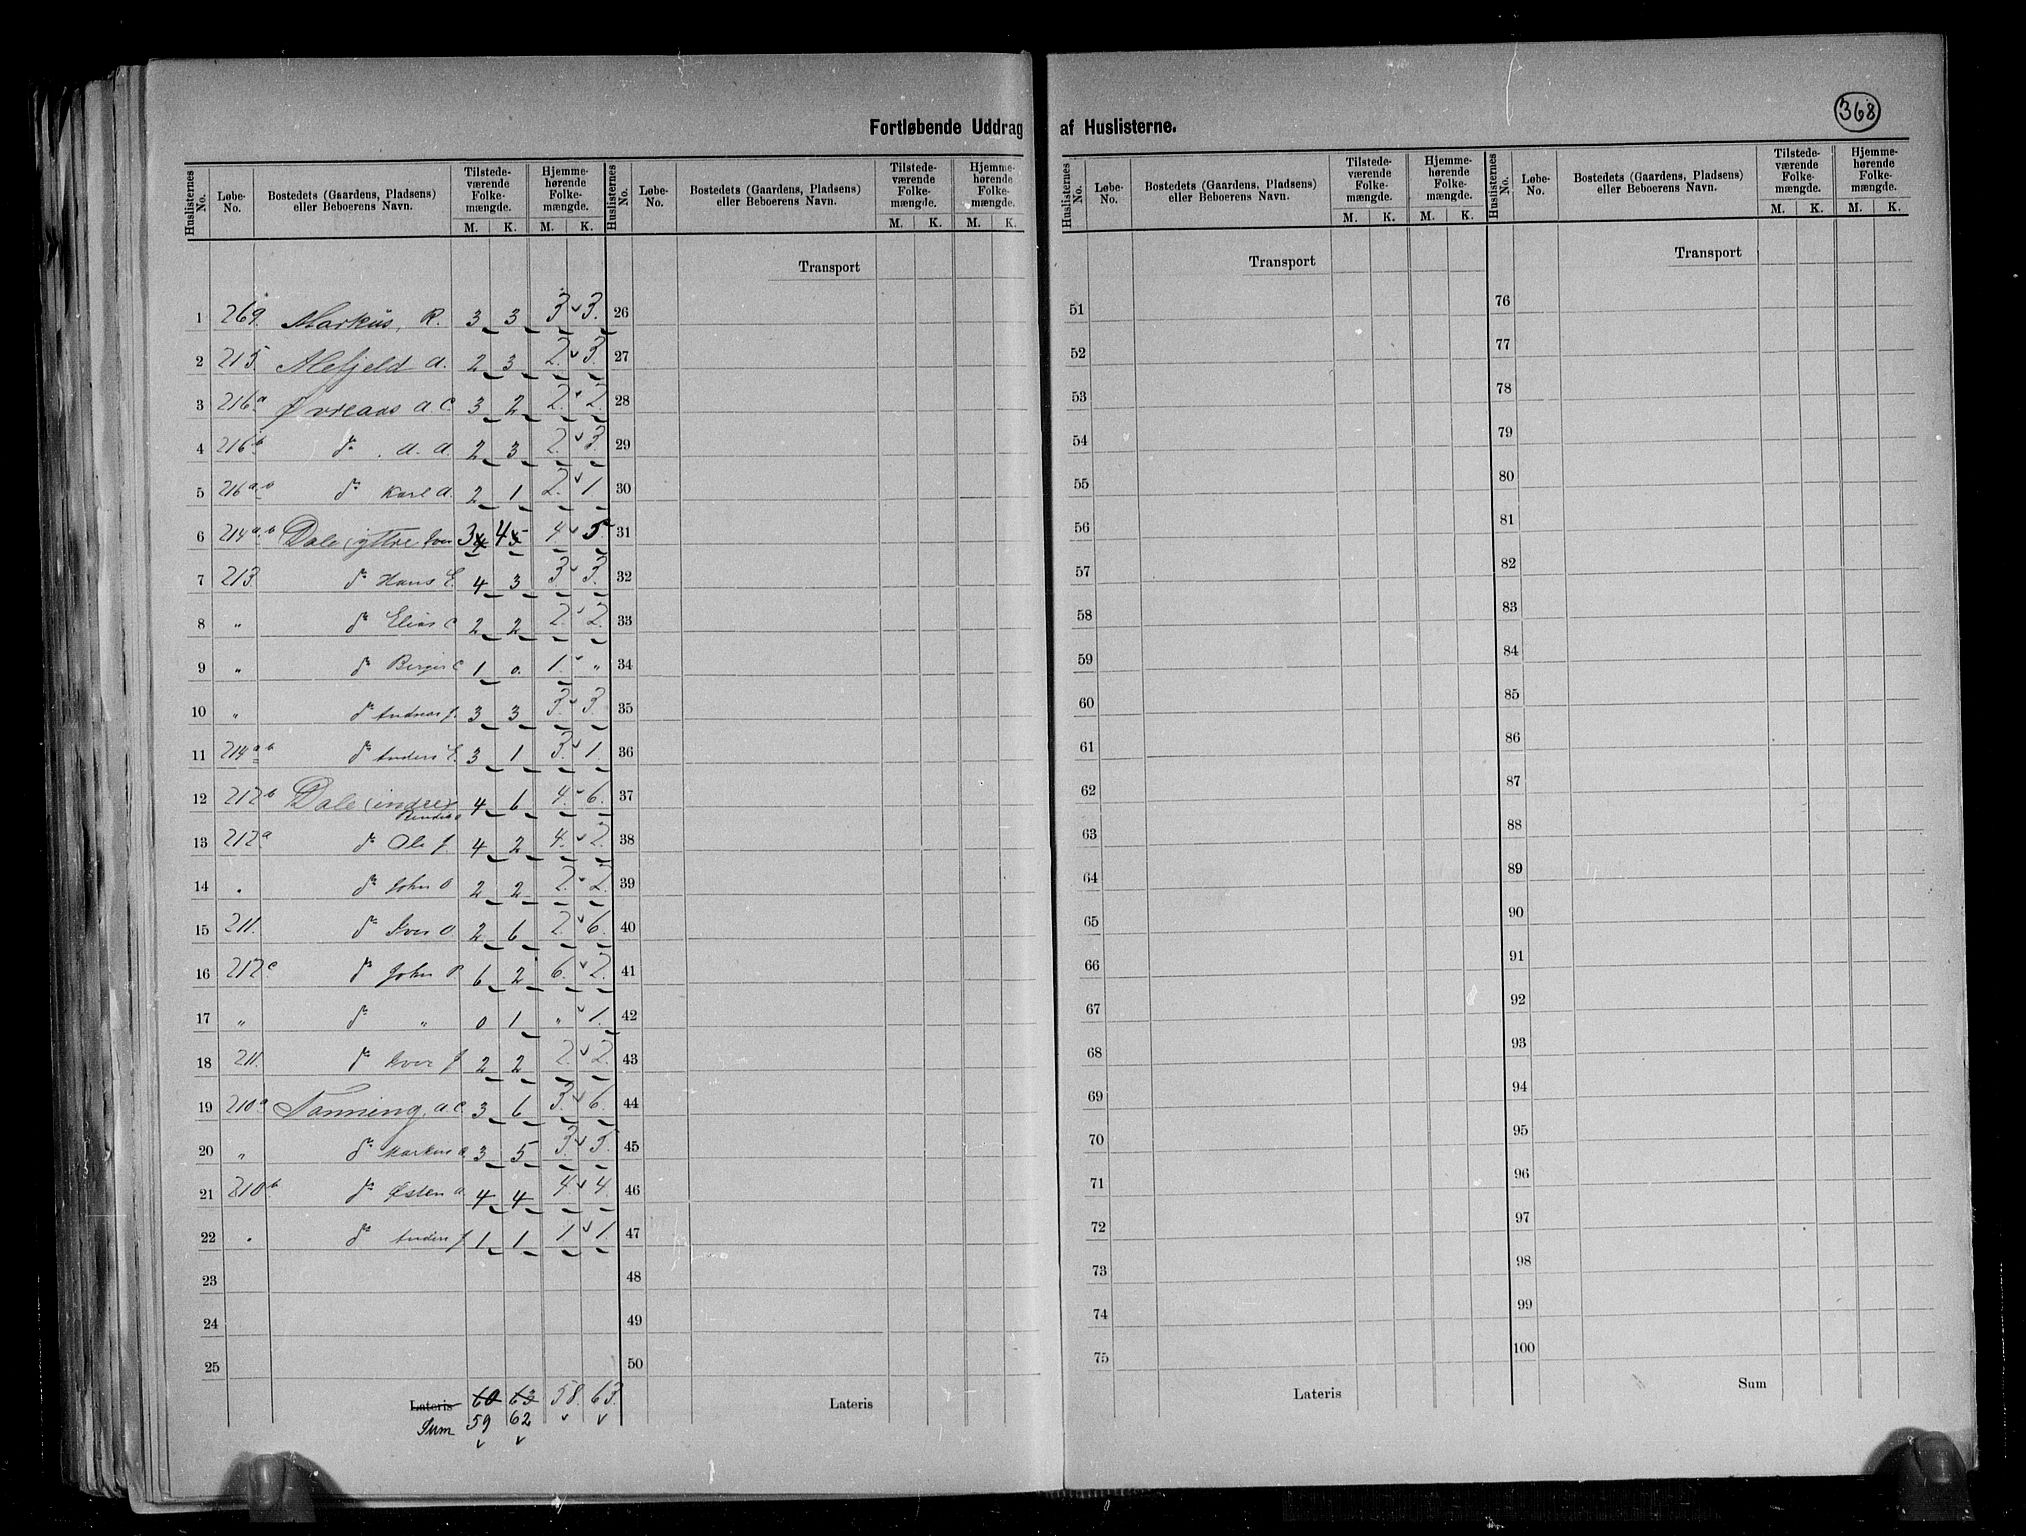 368
Fortløbende Uddrag af Huslisterne.
Huslisternes No. Løbe-No. Bostedets (Gaardens, Pladsens) eller Beboerens Navn. Tilstedeværende Folkemængde. M. K. Hjemmehørende Folkemængde. M. K.
Huslisternes No. Løbe-No. Bostedets (Gaardens, Pladsens) eller Beboerens Navn. Tilstedeværende Folkemængde. M. K. Hjemmehørende Folkemængde. M. K.
Huslisternes No. Løbe-No. Bostedets (Gaardens, Pladsens) eller Beboerens Navn. Tilstedeværende Folkemængde. M. K. Hjemmehørende Folkemængde. M. K.
Huslisternes No. Løbe-No. Bostedets (Gaardens, Pladsens) eller Beboerens Navn. Tilstedeværende Folkemængde. M. K. Hjemmehørende Folkemængde. M. K.
Transport Transport Transport
1 269. Markus, R. 3 3 3 3. 26 51 76
2 215. Alefjeld A. 2 3 2. 3. 27 52 77
3 216a Øvreaas A. C. 3 2 2. 2. 28 53 78
4 216b do. A. A. 2 3 2. 3. 29 54 79
5 216a,b do Karl A. 2 1 2. 1 30 55 80
6 214a,b Dale (yttre) Iver 3 4 4 5 4 5. 31 56 81
7 213 do Hans E. 4 3 3. 3. 32 57 82
8 " do Elias C 2 2 2. 2. 33 58 83
9 " do Birger C 1 0. 1 " 34 59 84
10 " do Andreas J. 3 3 3. 3. 35 60 85
11 214a,b do Anders E. 3 1 3. 1. 36 61 86
12 212b Dale (indre) 4 6 4. 6. 37 62 87
13 212a do Ole J. 4 2 4. 2. 38 63 88
14 " do John O 2 2 2. 2. 39 64 89
15 211. do Iver O. 2 6 2. 6. 40 65 90
16 212c. do John P. 6 2 6. 2. 41 66 91
17 " do " 0 1 " 1. 42 67 92
18 211. do Iver J. 2 2 2. 2. 43 68 93
19 210a Nanning, A. C. 3 6 3. 6. 44 69 94
20 " do Markus A. 3 5 3. 5. 45 70 95
21 210b do Østen A. 4 4 4 4. 46 71 96
22 " do Anders J. 1 1 1. 1. 47 72 97
23 48 73 98
24 49 74 99
25 50 75 100
Lateris 60 63 58. 63. Lateris Lateris Sum
Sum 59 62